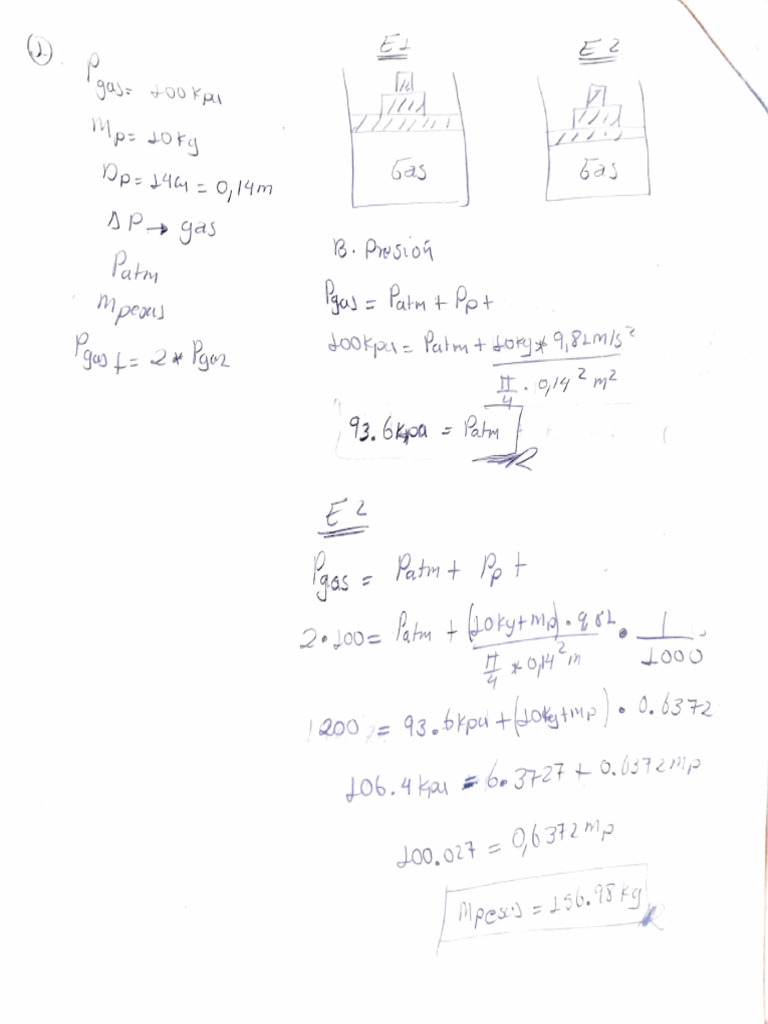 1.
Pgas = 100 Kpa
Mp = 10 kg
Dp = 14 cm = 0,14 m
ΔP → gas
Patm
Mpesas
Pgas f = 2 * Pgas
E1
Gas
E2
Gas
B. Presión
Pgas = Patm + Pp t
100 Kpa = Patm + 10 kg * 9,81 m/s² / π/4 . 0,14² m²
93.6 Kpa = Patm
E2
Pgas = Patm + Pp t
2 . 100 = Patm + (10 kg + mp) . 9,81 / π/4 * 0,14² m . 1/1000
200 = 93.6 kpa + (10 kg + mp) . 0.6372
106.4 kpa = 6.3727 + 0.6372 mp
100.027 = 0,6372 mp
Mpesas = 156.98 kg